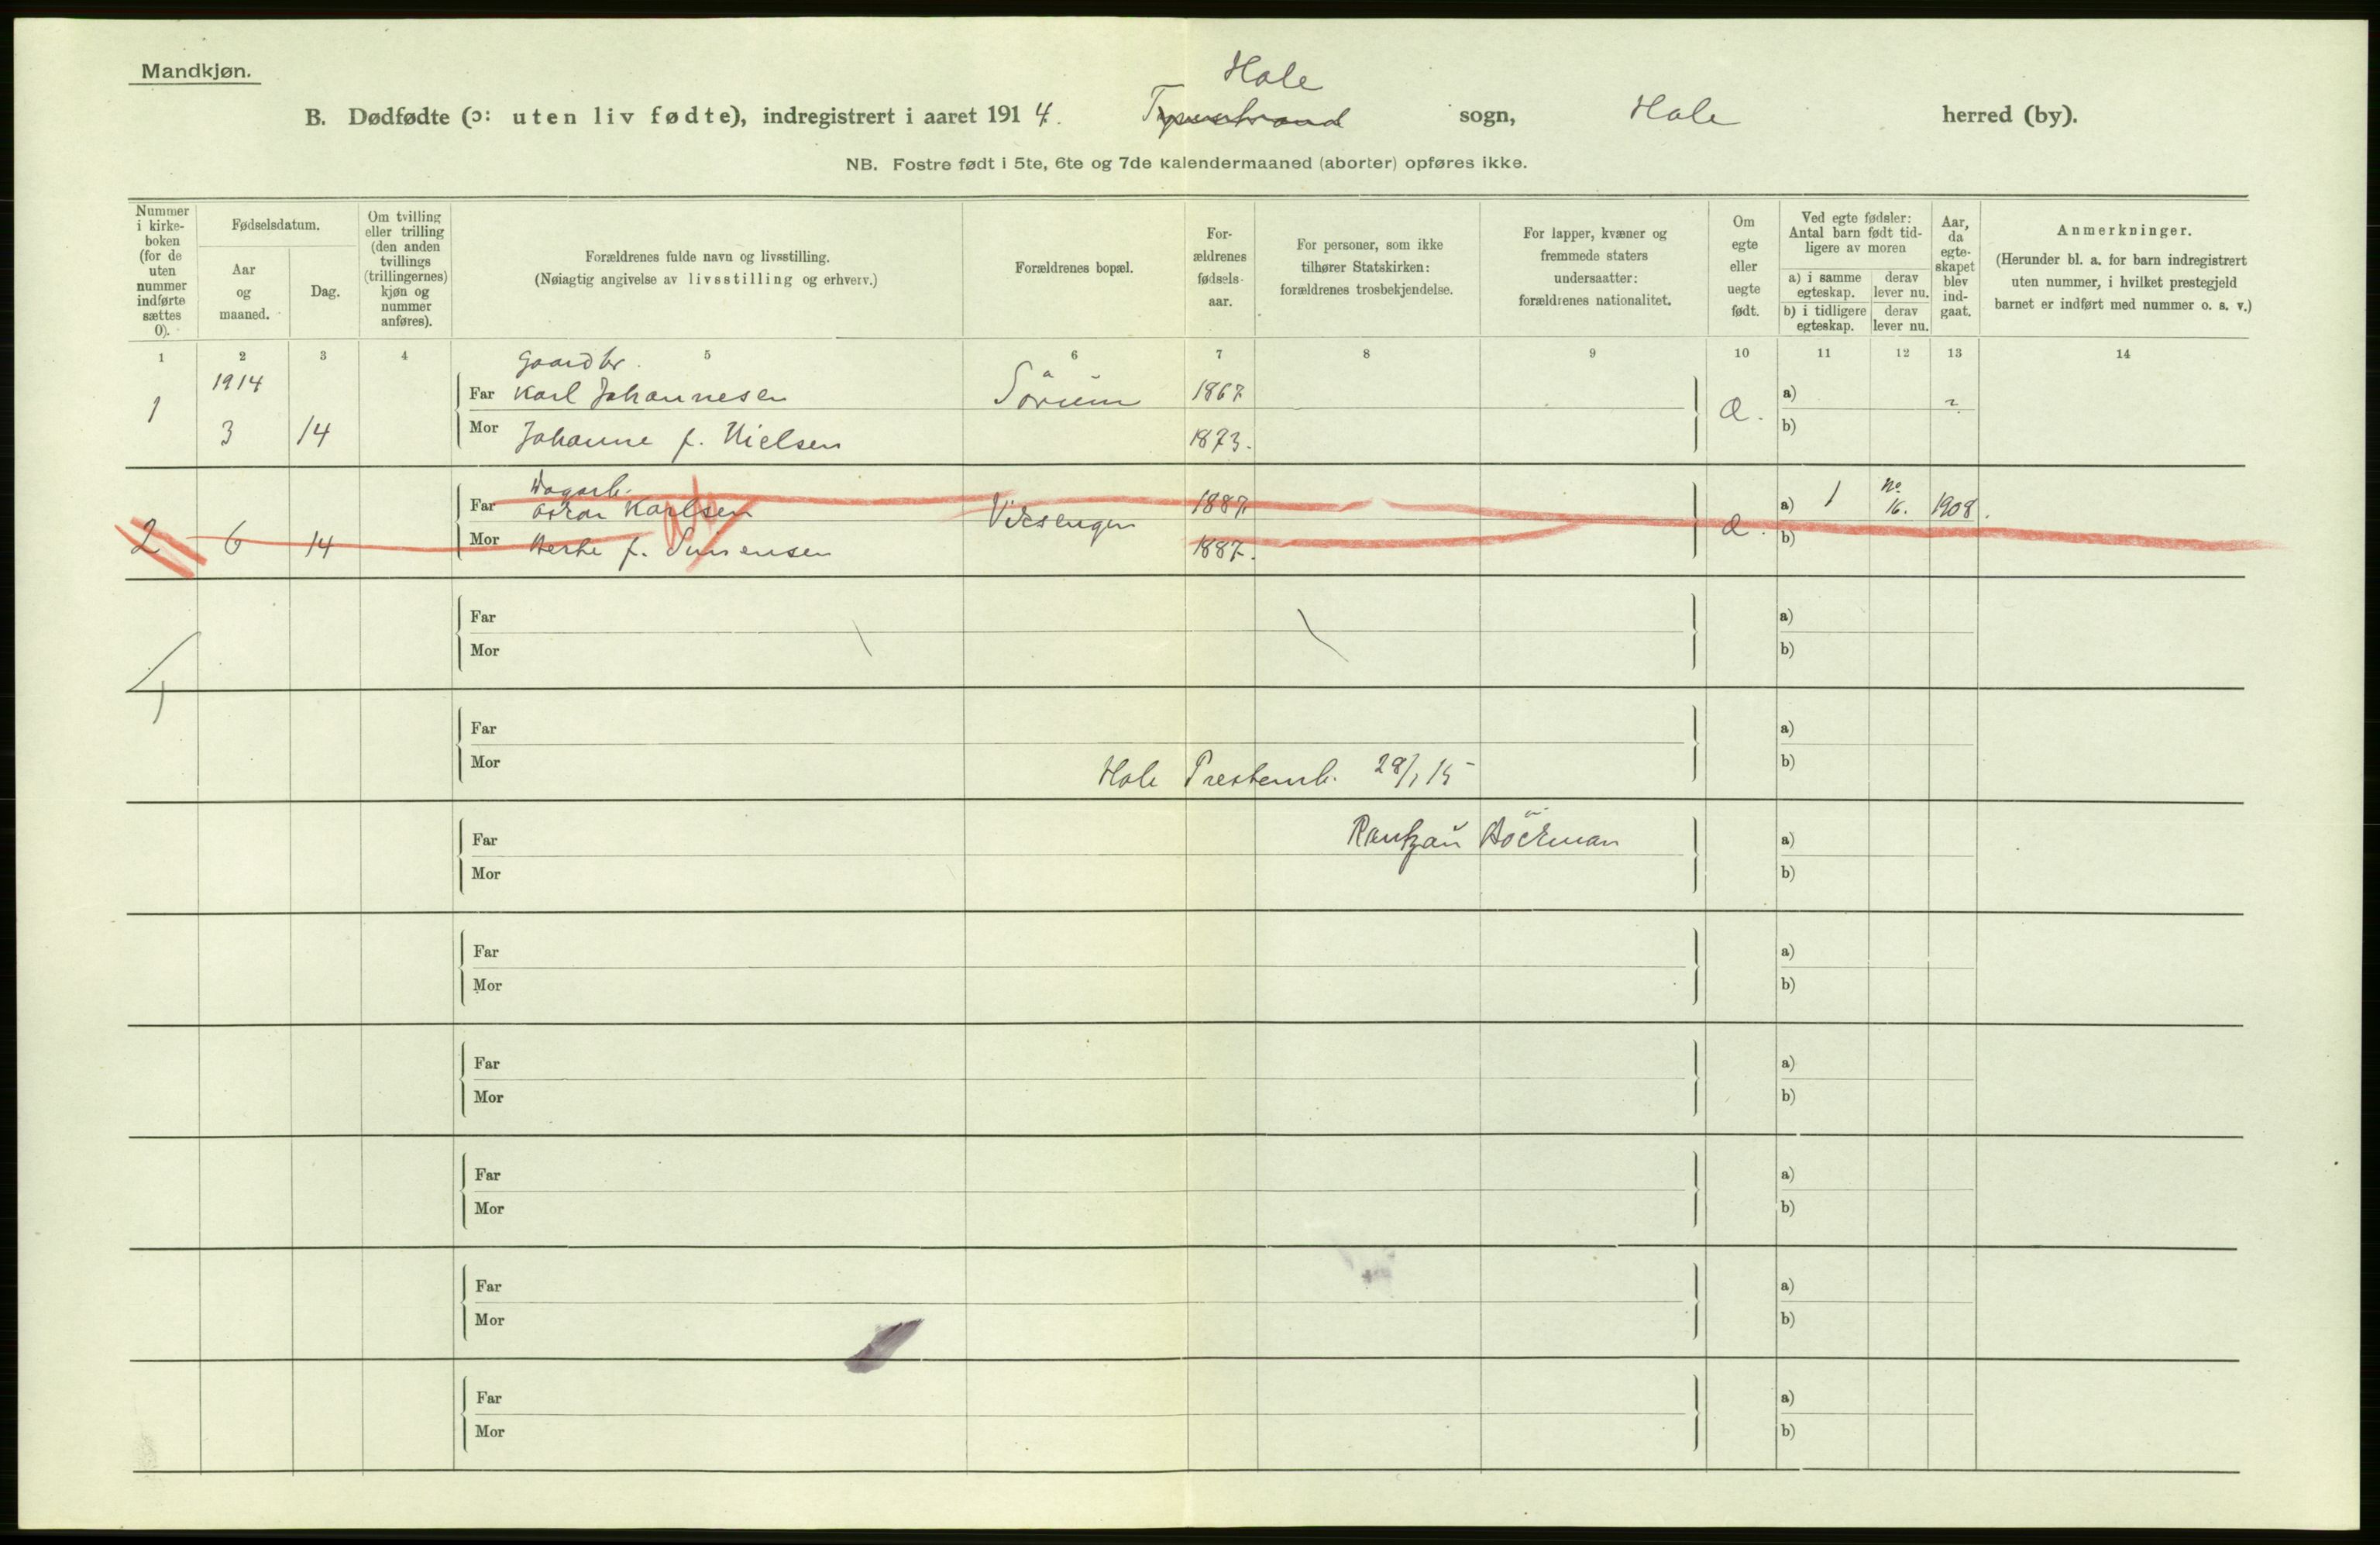 Mandkjøn.
Hole
B. Dødfødte (ɔ: uten liv fødte), indregistrert i aaret 1914. Tyristrand sogn, Hole herred (by).
NB. Fostre født i 5te, 6te og 7de kalendermaaned (aborter) opføres ikke.
Nummer i kirke-boken (for de uten nummer indførte sættes 0).
Fødselsdatum.
Aar og maaned.
Dag.
Om tvilling eller trilling (den anden tvillings (trillingernes) kjøn og nummer anføres).
Forældrenes fulde navn og livsstilling.
(Nøiagtig angivelse av livsstilling og erhverv.)
Forældrenes bopæl.
For-ældrenes fødsels-aar.
For personer, som ikke tilhører Statskirken: forældrenes trosbekjendelse.
For lapper, kvæner og fremmede staters undersaatter: forældrenes nationalitet.
Om egte eller uegte født.
Ved egte fødsler: Antal barn født tid-ligere av moren
a) i samme egteskap.
derav lever nu.
b) i tidligere egteskap.
derav lever nu.
Aar, da egte-skapet blev ind-gaat.
Anmerkninger.
(Herunder bl. a. for barn indregistrert uten nummer, i hvilket prestegjeld barnet er indført med nummer o. s. v.)
1 2 3 4 5 6 7 8 9 10 11 12 13 14
Gaardbr.
1914
1 Far Karl Johannesen Sörum 1867 a) ?
3 14 Mor Johanne f. Nielsen 1873. b)
Dagarb.
Far Oskar Karlsen 1887 a) 1 No 16. 1908.
2 6 14 Mor f. 1887. b)
Far a)
Mor b)
Far a)
Mor b)
Hole Prestemb. 28/1 15
Rantzau Böckman
Far a)
Mor b)
Far a)
Mor b)
Far a)
Mor b)
Far a)
Mor b)
Far a)
Mor b)
Far a)
Mor b)